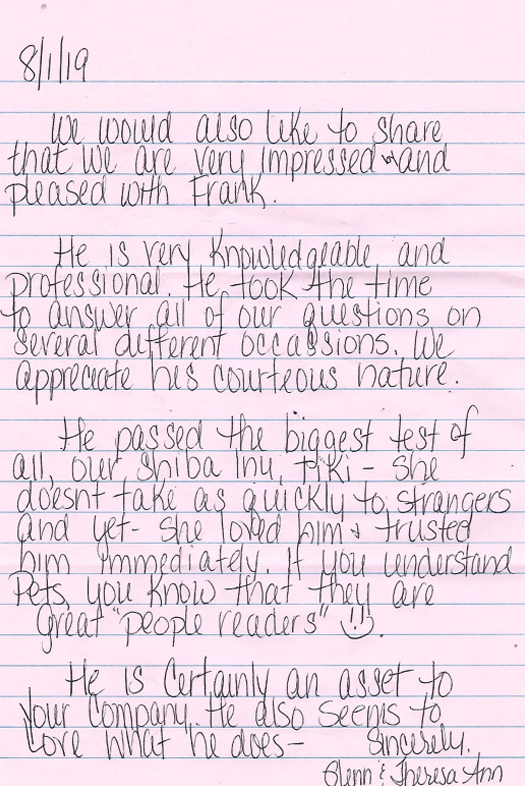 8/1/19
We would also like to share
that we are very impressed and
pleased with Frank.
He is very knowledgeable and
professional. He took the time
to answer all of our questions on
several different occassions. We
appreciate his courteous nature.
He passed the biggest test of
all, our Shiba Inu, Piki - She
doesnt take as quickly to strangers
and yet- she loved him & trusted
him immediately. If you understand
Pets, you know that they are
Great "people readers" :).
He is Certainly an asset to
your Company. He also seems to
Love what he does- Sincerely,
Glenn & Theresa Ann